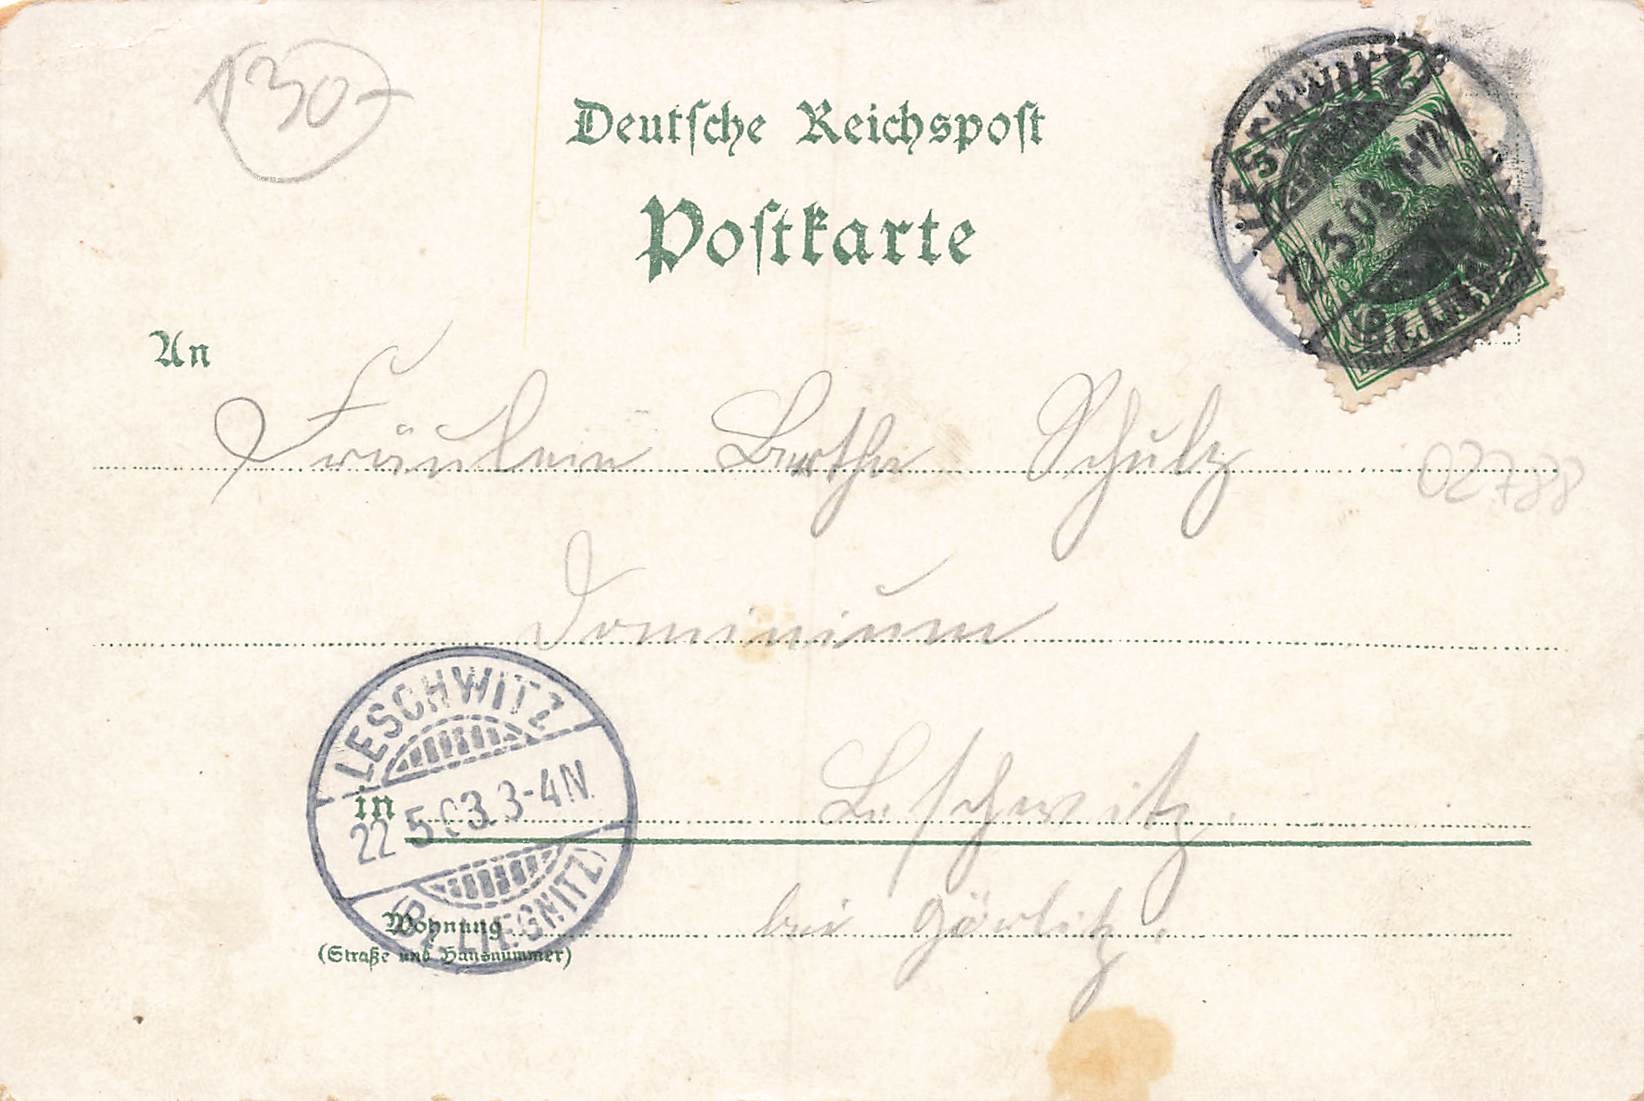 130-
Deutsche Reichspost
Postkarte
An
Fräulein Bertha Schulz
02788
Dominium
in Leschwitz.
bei Görlitz.
Wohnung
(Straße und Hausnummer)
LESCHWITZ
22 5.03. 3-4N.
(BZ. LIEGNITZ)
LESCHWITZ
5